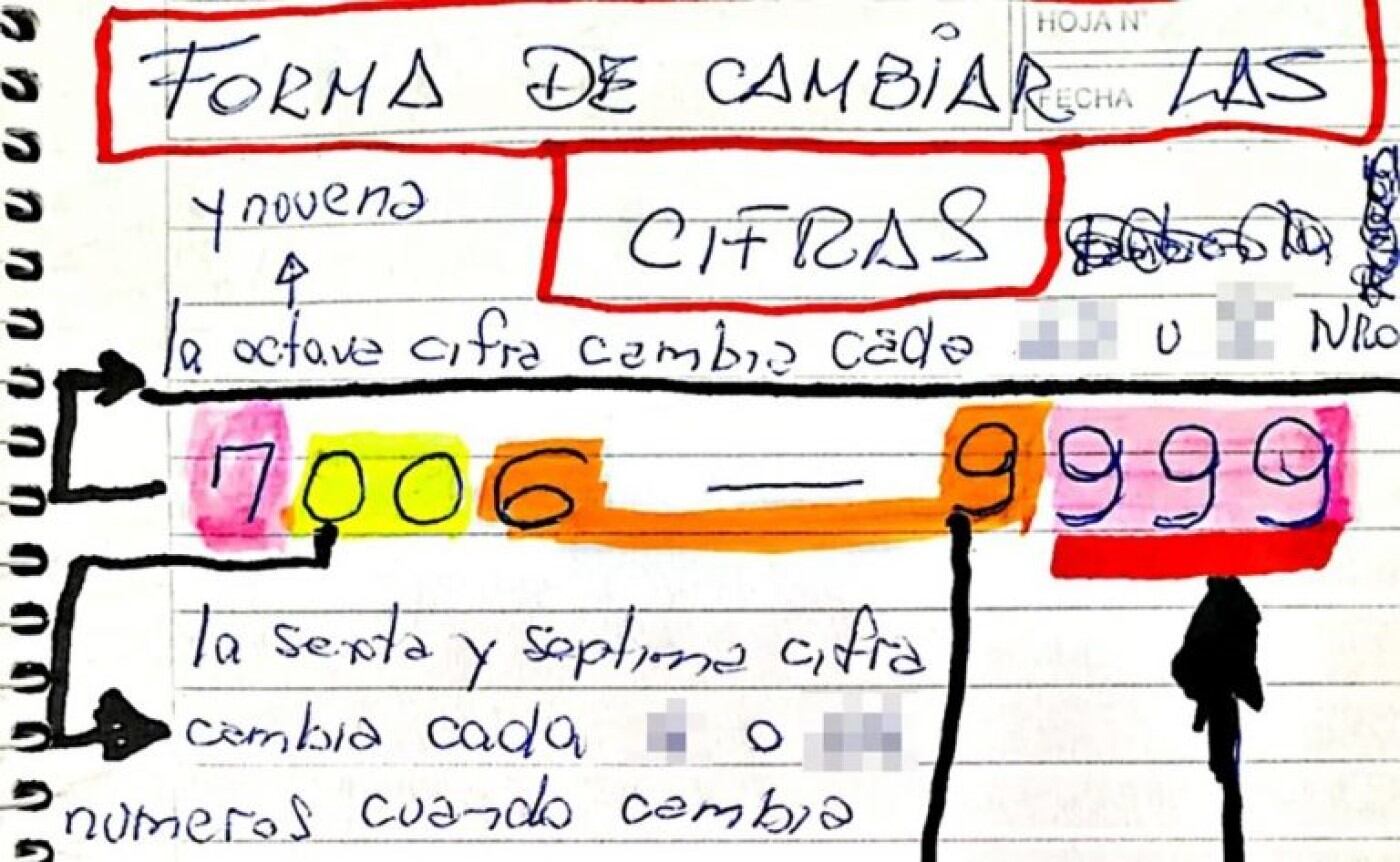 HOJA N°
FORMA DE CAMBIAR LAS
FECHA
y novena
CIFRAS
la octava cifra cambia cada u Nro
7006 — 9999
la sexta y septima cifra
cambia cada o
numeros cuando cambia